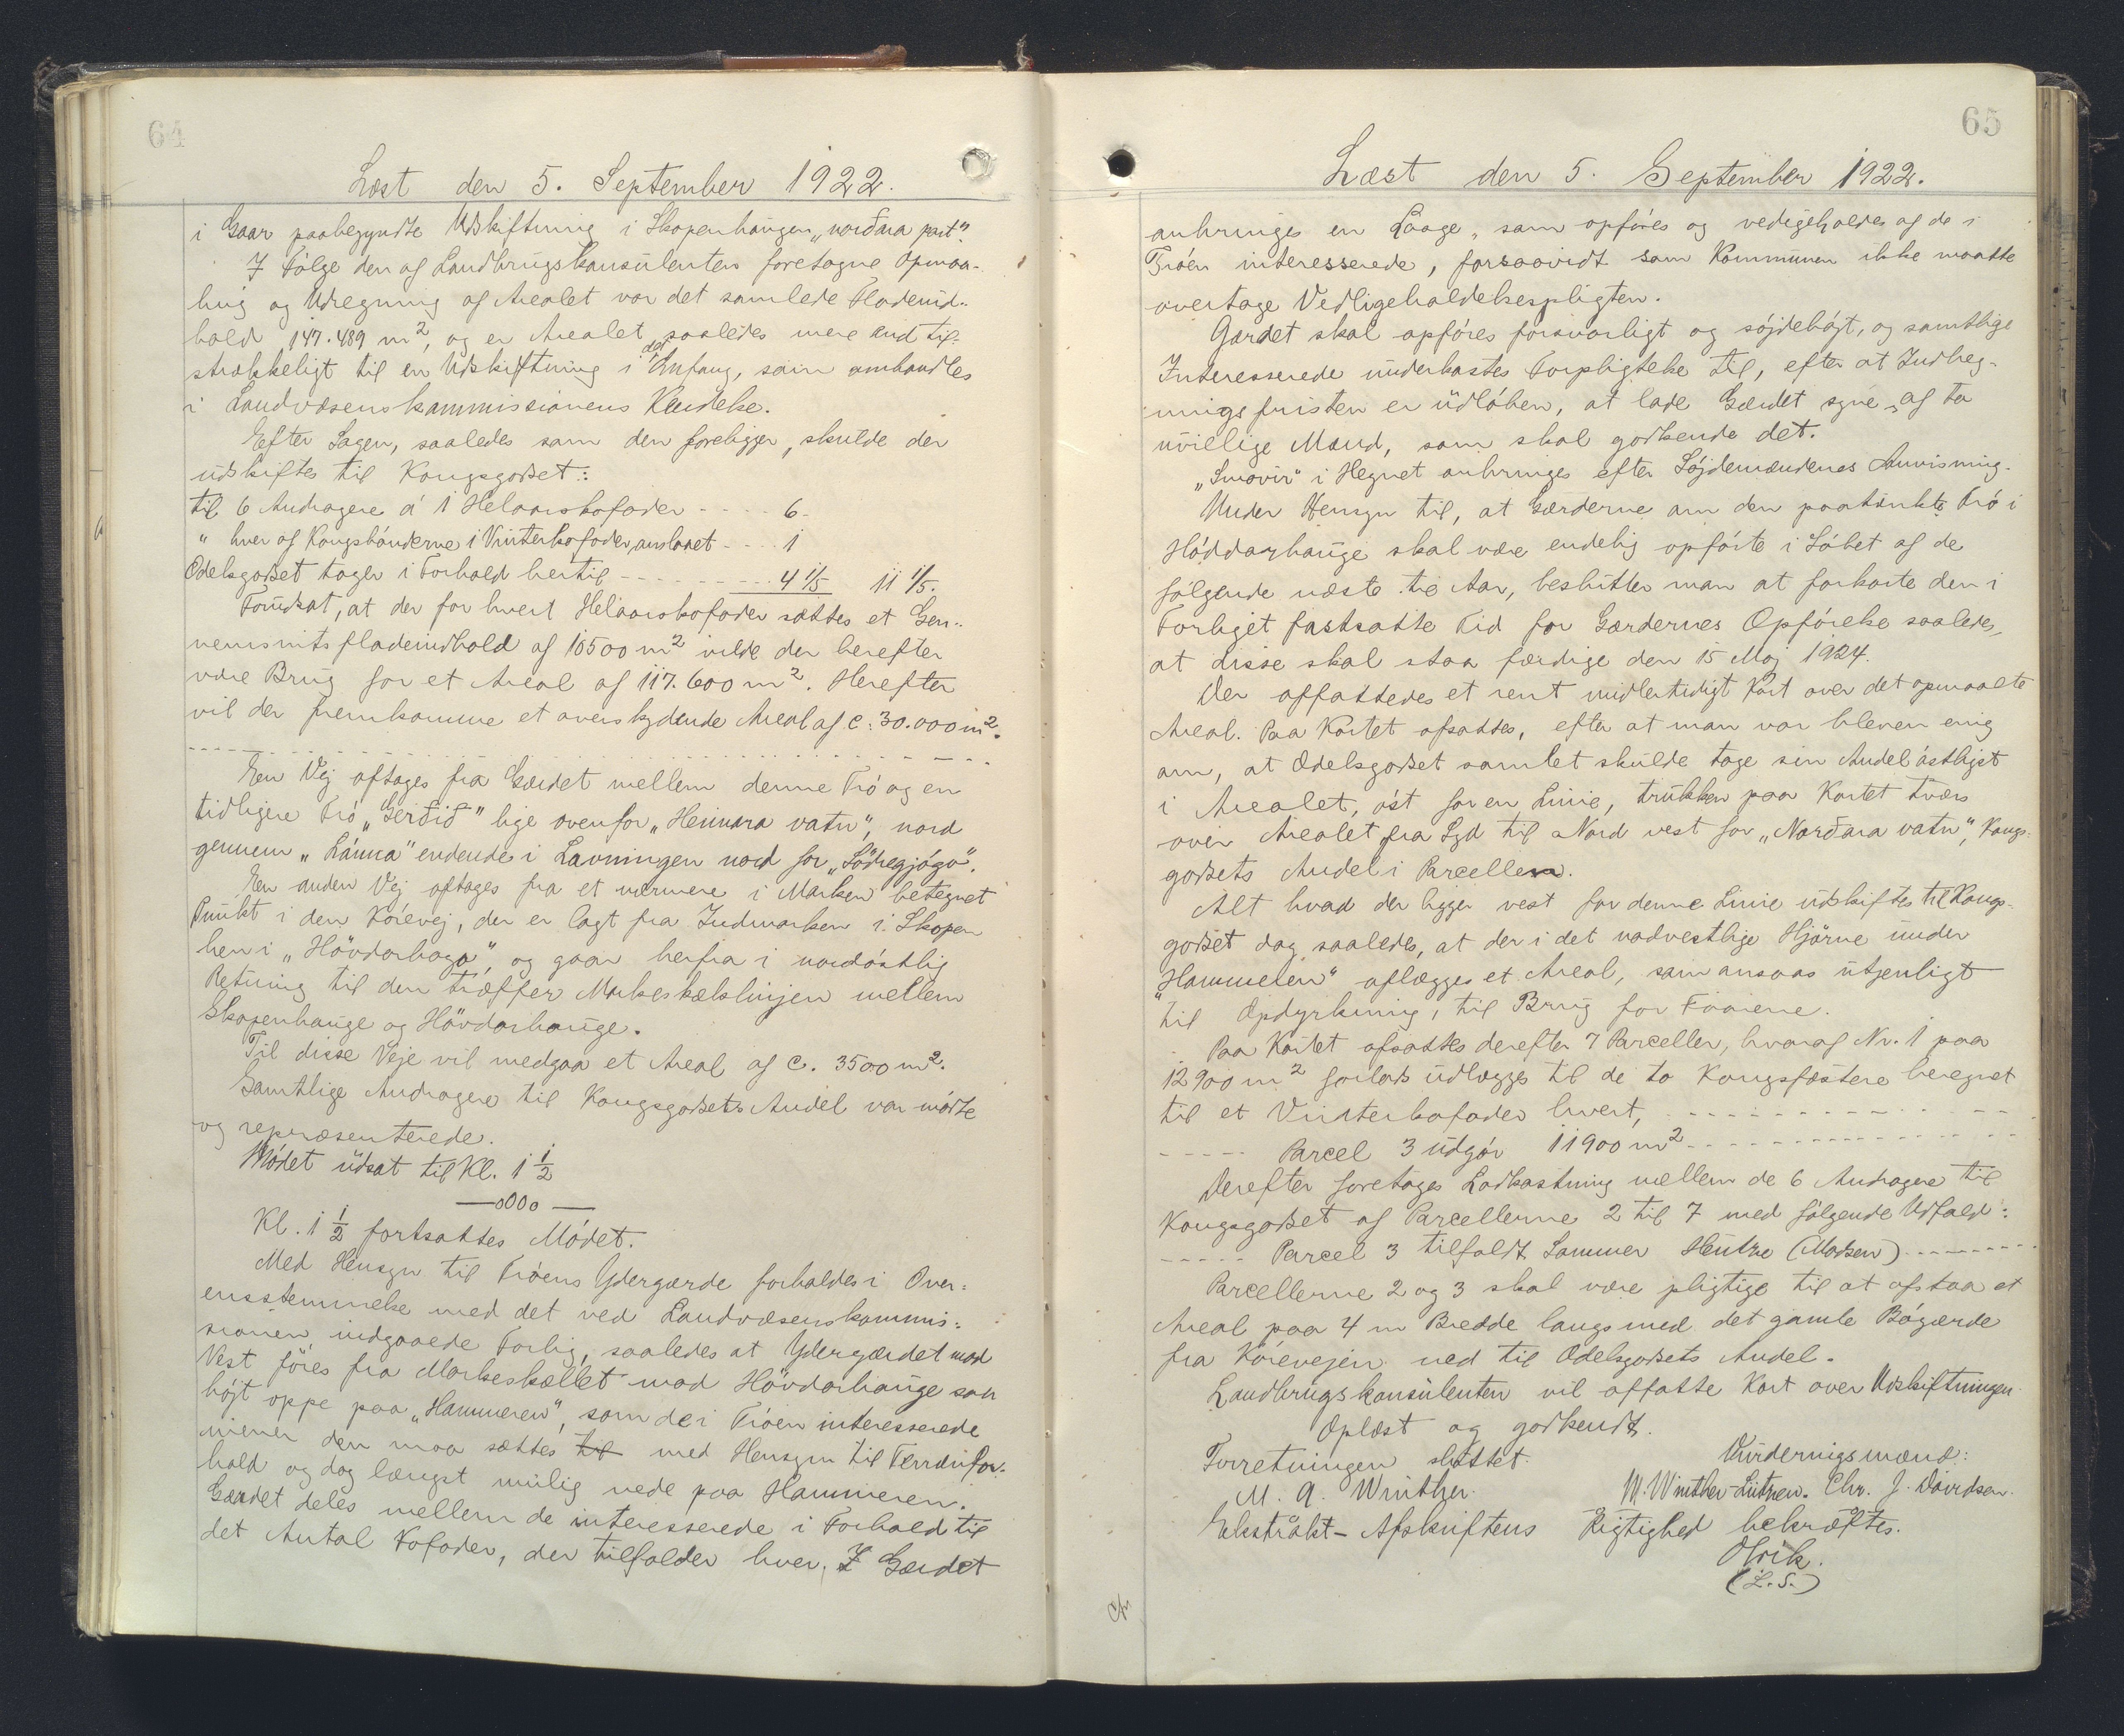 64
Læst den 5. September 1922.
i Gaar paabegyndte Udskiftning i Skopenhaugen „norðara part“.
I Følge den af Landbrugskonsulenten foretagne Opmaa-
ling og Udregning af Arealet var det samlede Fladeind-
hold 147.489 m², og er Arealet saaledes mere end til-
strækkeligt til en Udskiftning i det Omfang, som omhandles
i Landvæsenskommissionens Kendelse.
Efter Sagen, saaledes som den foreligger, skulde der
udskiftes til Kongsgodset:
til 6 Andragere á 1 Helaarskofoder - - - - 6
" hver af Kongsbønderne i Vinterkofoder, anslaaet - - - 1
Odelsgodset tager i Forhold hertil - - - - - - - - 4 1/5 11 1/5.
Forudsat, at der for hvert Helaarskofoder sættes et Gen-
nemsnitsfladeindhold af 10500 m² vilde der herefter
være Brug for et Areal af 117.600 m². Herefter
vil der fremkomme et overskydende Areal af c. 30.000 m².
- - - - - - - - - - - - - - - - - - - -
Een Vej aftages fra Gærdet mellem denne Trø og en
tidligere Trø „Gerðið“ lige ovenfor „Heimara vatn“, nord
gennem „Lánna“ endende i Lavningen nord for „Södregjógv“.
Een anden Vej aftages fra et nærmere i Marken betegnet
Punkt i den Kørevej, der er lagt fra Indmarken i Skopen
hen i „Hövdarhaga“, og gaar herfra i nordøstlig
Retning til den træffer Markeskælslinjen mellem
Skopenhauge og Hövdarhauge.
Til disse Veje vil medgaa et Areal af c. 3500 m².
Samtlige Andragere til Kongsgodsets Andel var mødte
og repræsenterede.
Mødet udsat til Kl. 1 ½
—oOOo—
Kl. 1 ½ fortsattes Mødet.
Med Hensyn til Trøens Ydergærde forholdes i Over-
ensstemmelse med det ved Landvæsenskommis-
sionen indgaaede Forlig, saaledes at Ydergærdet mod
Vest føres fra Markeskællet mod Hövdarhauge saa
højt oppe paa „Hammeren“, som de i Trøen interesserede
mener den maa sættes til med Hensyn til Terrænfor-
hold og dog længst mulig nede paa Hammeren.
Gærdet deles mellem de interesserede i Forhold til
det Antal Kofoder, der tilfalder hver. I Gærdet
65
Læst den 5. September 1922.
anbringes en Laage, som opføres og vedligeholdes af de i
Trøen interesserede, forsaavidt som Kommunen ikke maatte
overtage Vedligeholdelsespligten.
Gærdet skal opføres forsvarligt og søjdehøjt, og samtlige
Interesserede underkastes Forpligtelse til, efter at Indheg-
nings fristen er udløben, at lade Gærdet syne af to
uvillige Mænd, som skal godkende det.
„Smovir“ i Hegnet anbringes efter Søjdemændenes Anvisning.
Under Hensyn til, at Gærderne om den paatænkte Trø i
Høddarhauge skal være endelig opførte i Løbet af de
følgende næste to Aar, beslutter man at forkorte den i
Forliget fastsatte Tid for Gærdernes Opførelse saaledes,
at disse skal staa færdige den 15 Maj 1924.
Der affattedes et rent midlertidigt Kort over det opmaalte
Areal. Paa Kortet afsattes, efter at man var bleven enig
om, at Odelsgodset samlet skulde tage sin Andel østligst
i Arealet, øst for en Linie, trukken paa Kortet tværs
over Arealet fra Syd til Nord vest for „Norðara vatn“, Kongs-
godsets Andel i Parceller.
Alt hvad der ligger vest for denne Linie udskiftes til Kongs-
godset dog saaledes, at der i det nordvestlige Hjørne under
„Hammeren“ aflægges et Areal, som ansaas utjenligt
til Opdyrkning, til Brug for Faarene.
Paa Kortet afsattes derefter 7 Parceller, hvoraf Nr. 1 paa
12900 m² forlods udlægges til de to Kongsfæstere beregnet
til et Vinterkofoder hvert, - - - - - - - - - - -
- - - - - Parcel 3 udgør 11900 m² - - - - - - - - - - - - -
Derefter foretages Lodkastning mellem de 6 Andragere til
Kongsgodset af Parcellerne 2 til 7 med følgende Udfald:
- - - - - Parcel 3 tilfaldt Sammer Heintze (Madsen) - - - - - - -
Parcellerne 2 og 3 skal være pligtige til at afstaa et
Areal paa 4 m Bredde langs med det gamle Bøgærde
fra Kørevejen ned til Odelsgodsets Andel.
Landbrugskonsulenten vil affatte Kort over Udskiftningen.
Oplæst og godkendt.
Forretningen sluttet. Vurderingsmænd:
M. A. Winther. M. Winther-Lützen. Chr. J. Davidsen.
Ekstrakt- Afskriftens Rigtighed bekræftes.
Olrik.
(L.S.)